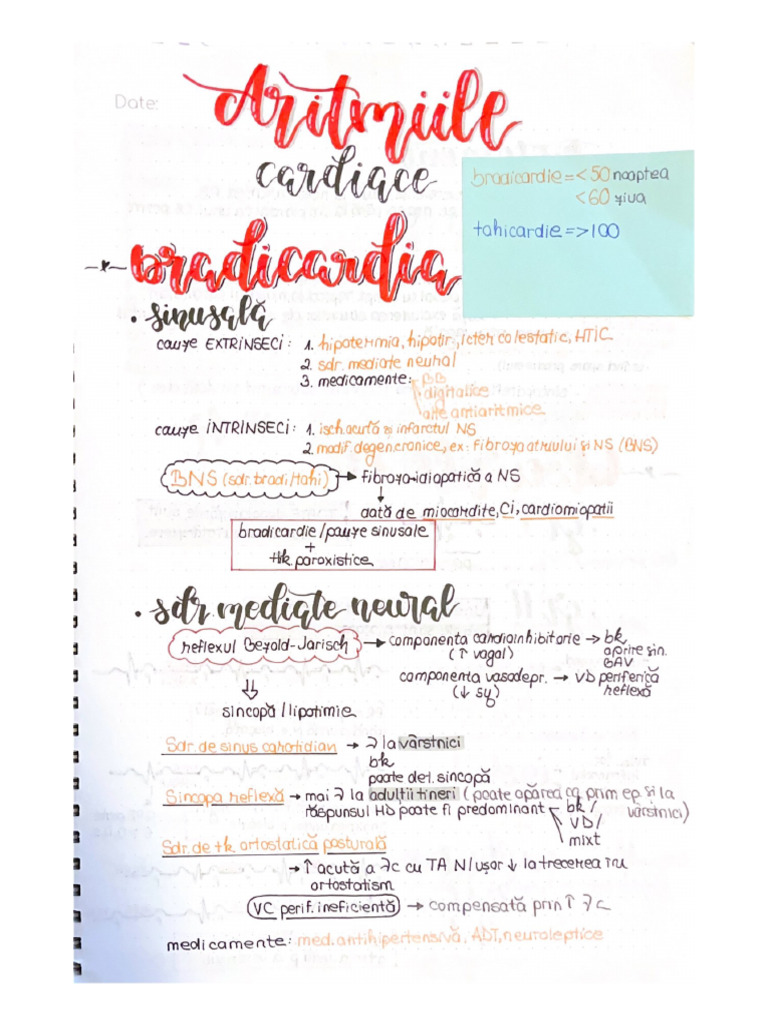 Date:
Aritmiile
cardiace
bradicardie = <50 noaptea
<60 ziua
tahicardie = >100
bradicardia
• sinusală
cauze EXTRINSECI: 1. hipotermia, hipotir., icter colestatic, HTIC
2. sdr. mediate neural
3. medicamente: BB
digitalice
alte antiaritmice
cauze INTRINSECI: 1. isch. acută și infarctul NS
2. modif. degen. cronice, ex: fibroza atriului și NS (BNS)
BNS (sdr. bradi/tahi) → fibroza idiopatică a NS
↓
dată de miocardite, Ci, cardiomiopatii
bradicardie/pauze sinusale
+
tk. paroxistice
• sdr. mediate neural
reflexul Bezold-Jarisch → componenta cardioinhibitorie → bk
(↑ vagal) oprire sin.
BAV
componenta vasodepr. → VD periferică
(↓ sy) reflexă
⇓
sincopă / lipotimie
Sdr. de sinus carotidian → λ la vârstnici
bk
poate det. sincopă
Sincopa reflexă → mai λ la adulții tineri (poate apărea ca prim ep. și la
răspunsul HD poate fi predominant bk/ vârstnici)
VD/
mixt
Sdr. de tk. ortostatică posturală
→ ↑ acută a λc cu TA N/ușor ↓ la trecerea în
ortostatism
VC perif. ineficientă → compensată prin ↑ λc
medicamente: med. antihipertensivă, ADT, neuroleptice